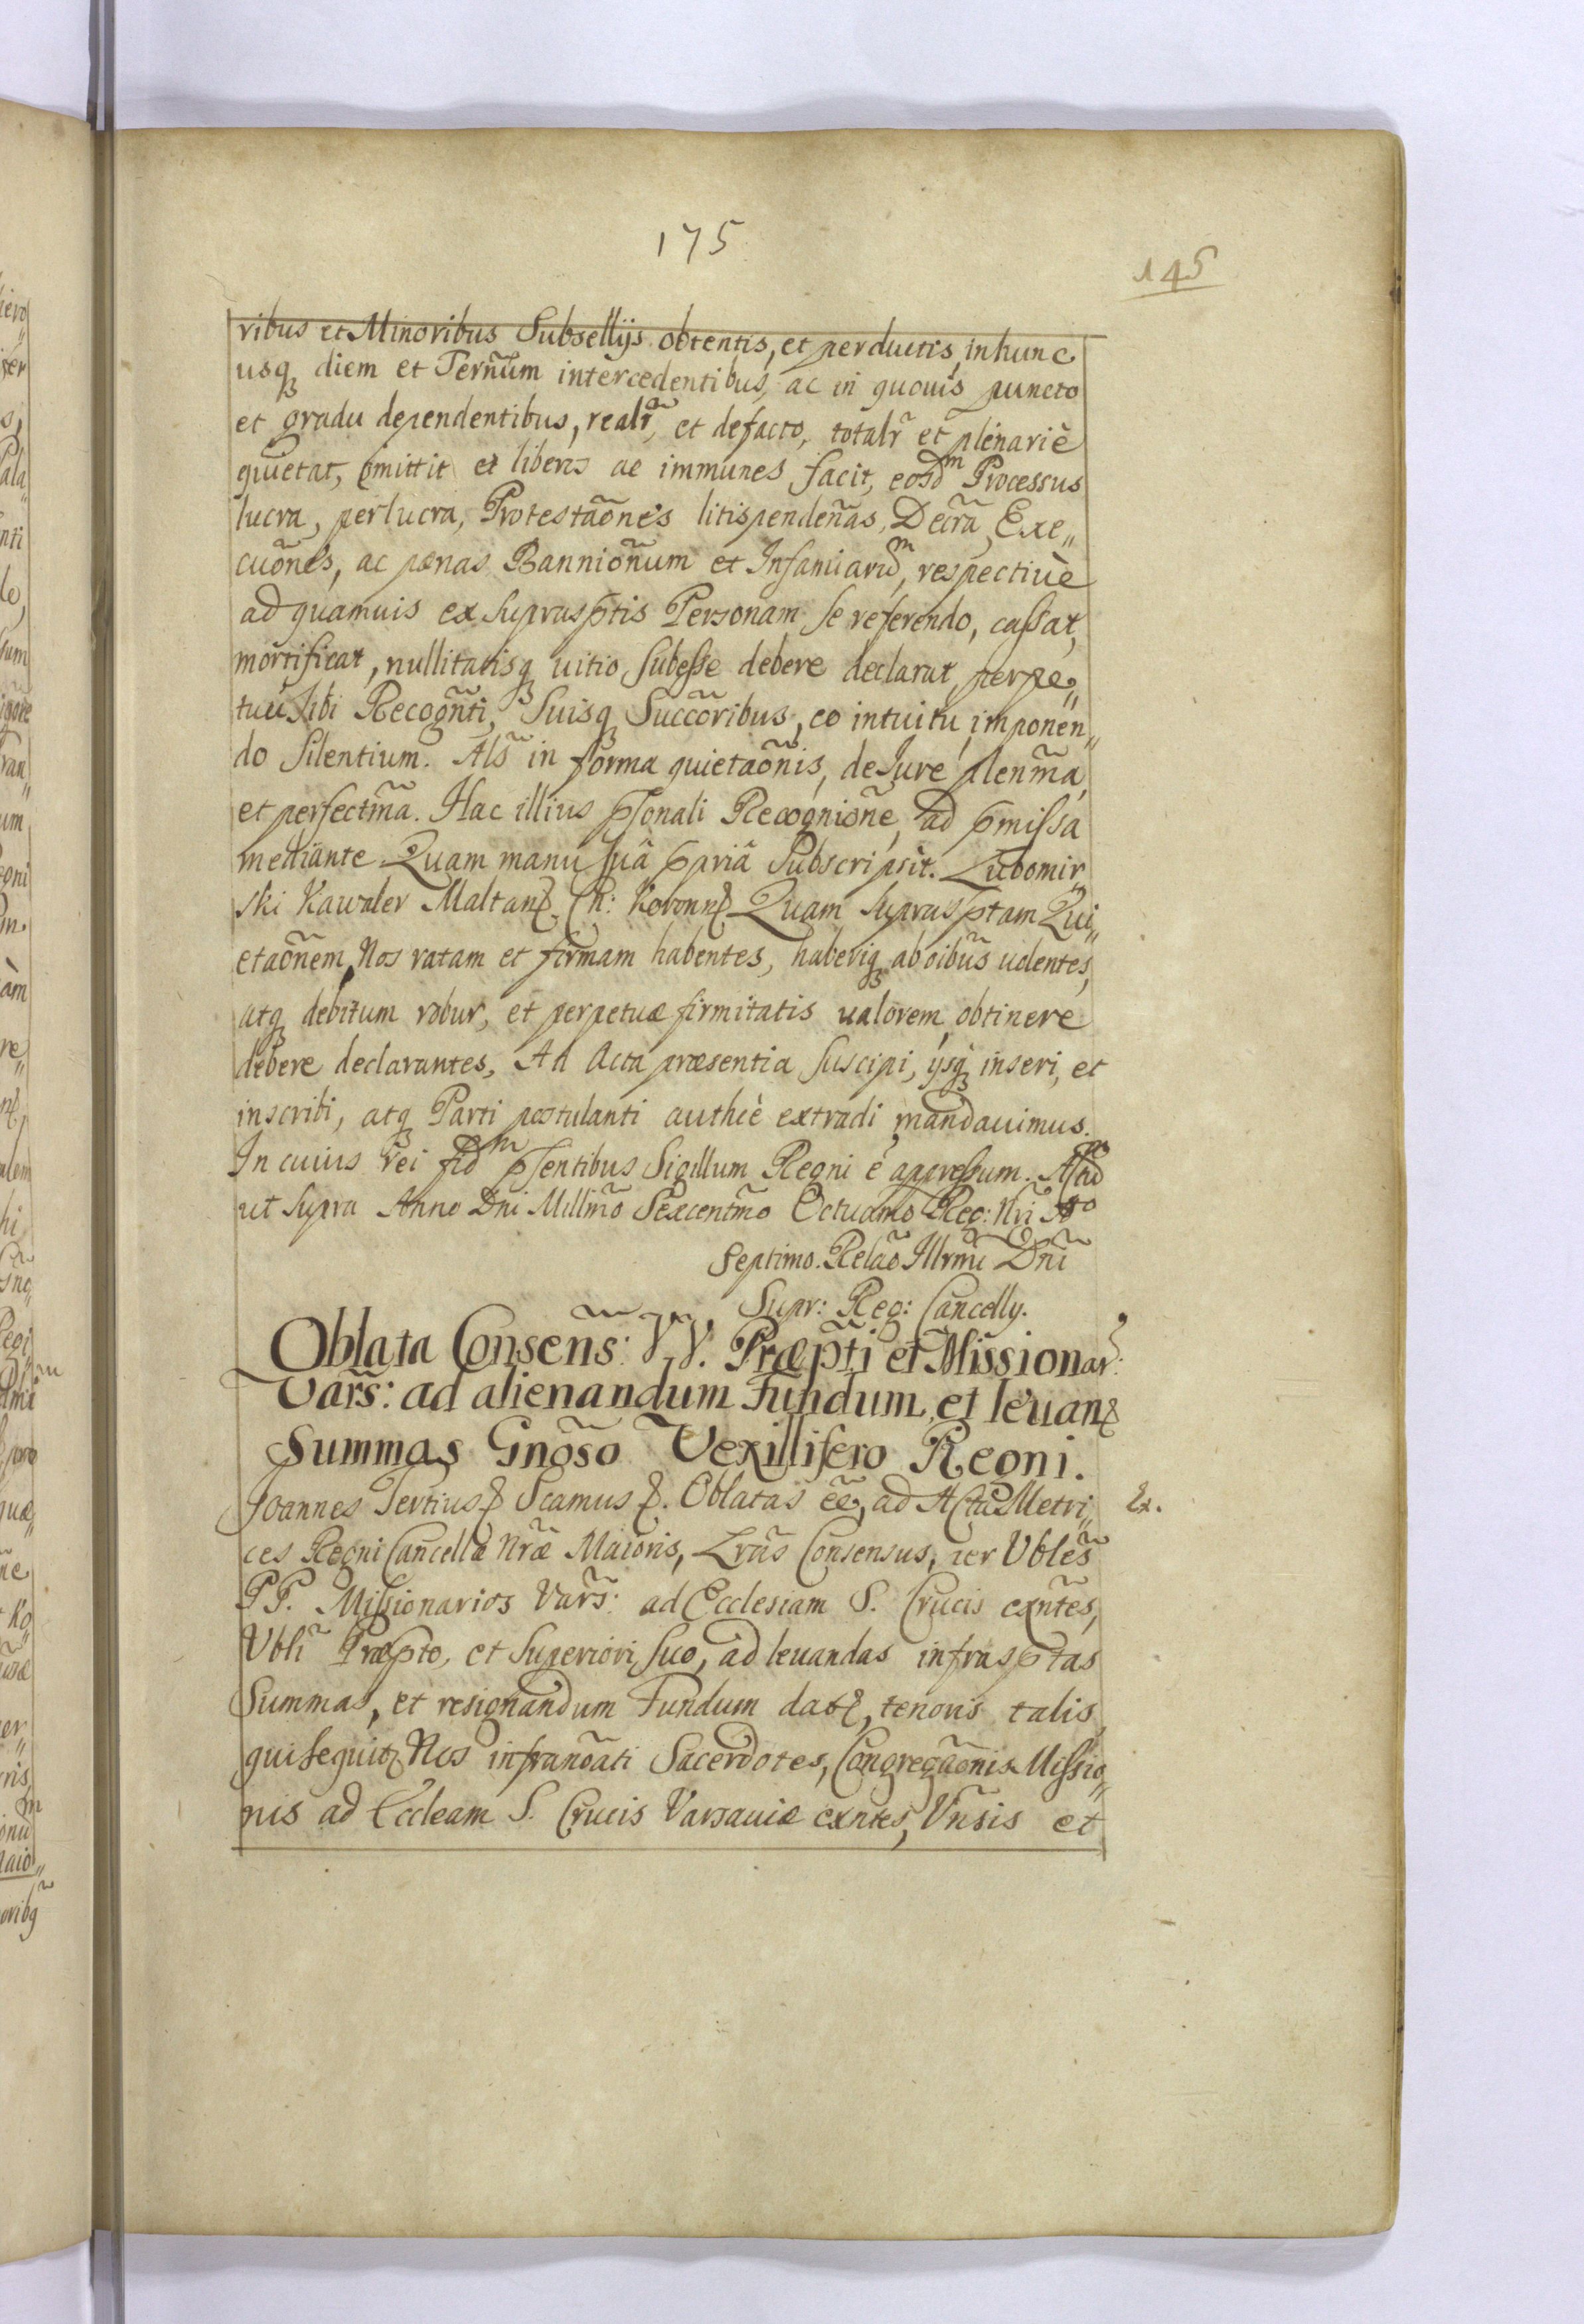 175
145
ribus et Minoribus Subsellijs obtentis, et perductis, in hunc
usq diem et Terñum intercedentibus, ac in quouis puncto
et gradu dependentibus, realr̃, et defacto, totalr̃ et plenariè
quietat, omittit et liberos ac immunes facit, eosdm Processus
lucra, perlucra, Protestaões litispendeñas, Decr̃a, Exe„
cuõnes, ac pænas Banniõnum et Infamiarum, respectiuè
ad quamuis ex suprasptis Personam se referendo, cassat,
mortificat, nullitatisq uitio subesse debere declarat, perpe„
tuũ sibi Recogñti, suisq Succõribus, eo intuitu, imponen„
do silentium. Als̃ in forma quietaõnis, de Jure plenm̃a,
et perfectm̃a. Hac illius psonali Recogniõne, ad pmissa
mediante. Quam manu suâ ppriâ subscripsit. Lubomir„
ski Kawaler Maltan. Ch: Koronn Quam suprasptam Qui„
etaõnem, Nos ratam et firmam habentes, haberiq ab oibus uolentes,
atq debitum robur, et perpetuæ firmitatis ualorem obtinere
debere declarantes, Ad Acta præsentia suscipi, ijsq inseri, et
inscribi, atq Parti postulanti authcè extradi mandauimus.
In cuius rei fidm psentibus Sigillum Regni e appressum. Actũ
ut supra Anno Dni Millm̃o Sexcentm̃o Octuamo Reg: Nri Ao
Septimo. Relaõ Illrmi Dñi
Supr: Reg: Cancelly.
Oblata Conseñs: VV. Præpti et Missionar:
Vars̃: ad alienandum Fundum et leuan
Summas Gnõso Vexillifero Regni.
Joannes Tertius Scamus. Oblatas ẽe, ad Acta Metri„
Ex.
ces Regni Cancellæ Nræ Maioris, Lras Consensus, per Vbles̃
PP. Missionarios Vars̃: ad Ecclesiam S. Crucis exñtes,
Vbli Præpto, et Superiori suo, ad leuandas infrasptas
Summas, et resignandum Fundum dat, tenoris talis,
qui sequit Nos infranõati Sacerdotes, Congregaõnis Missio„
nis ad Eccleam S. Crucis Varsauiæ exntes, Vnsis et